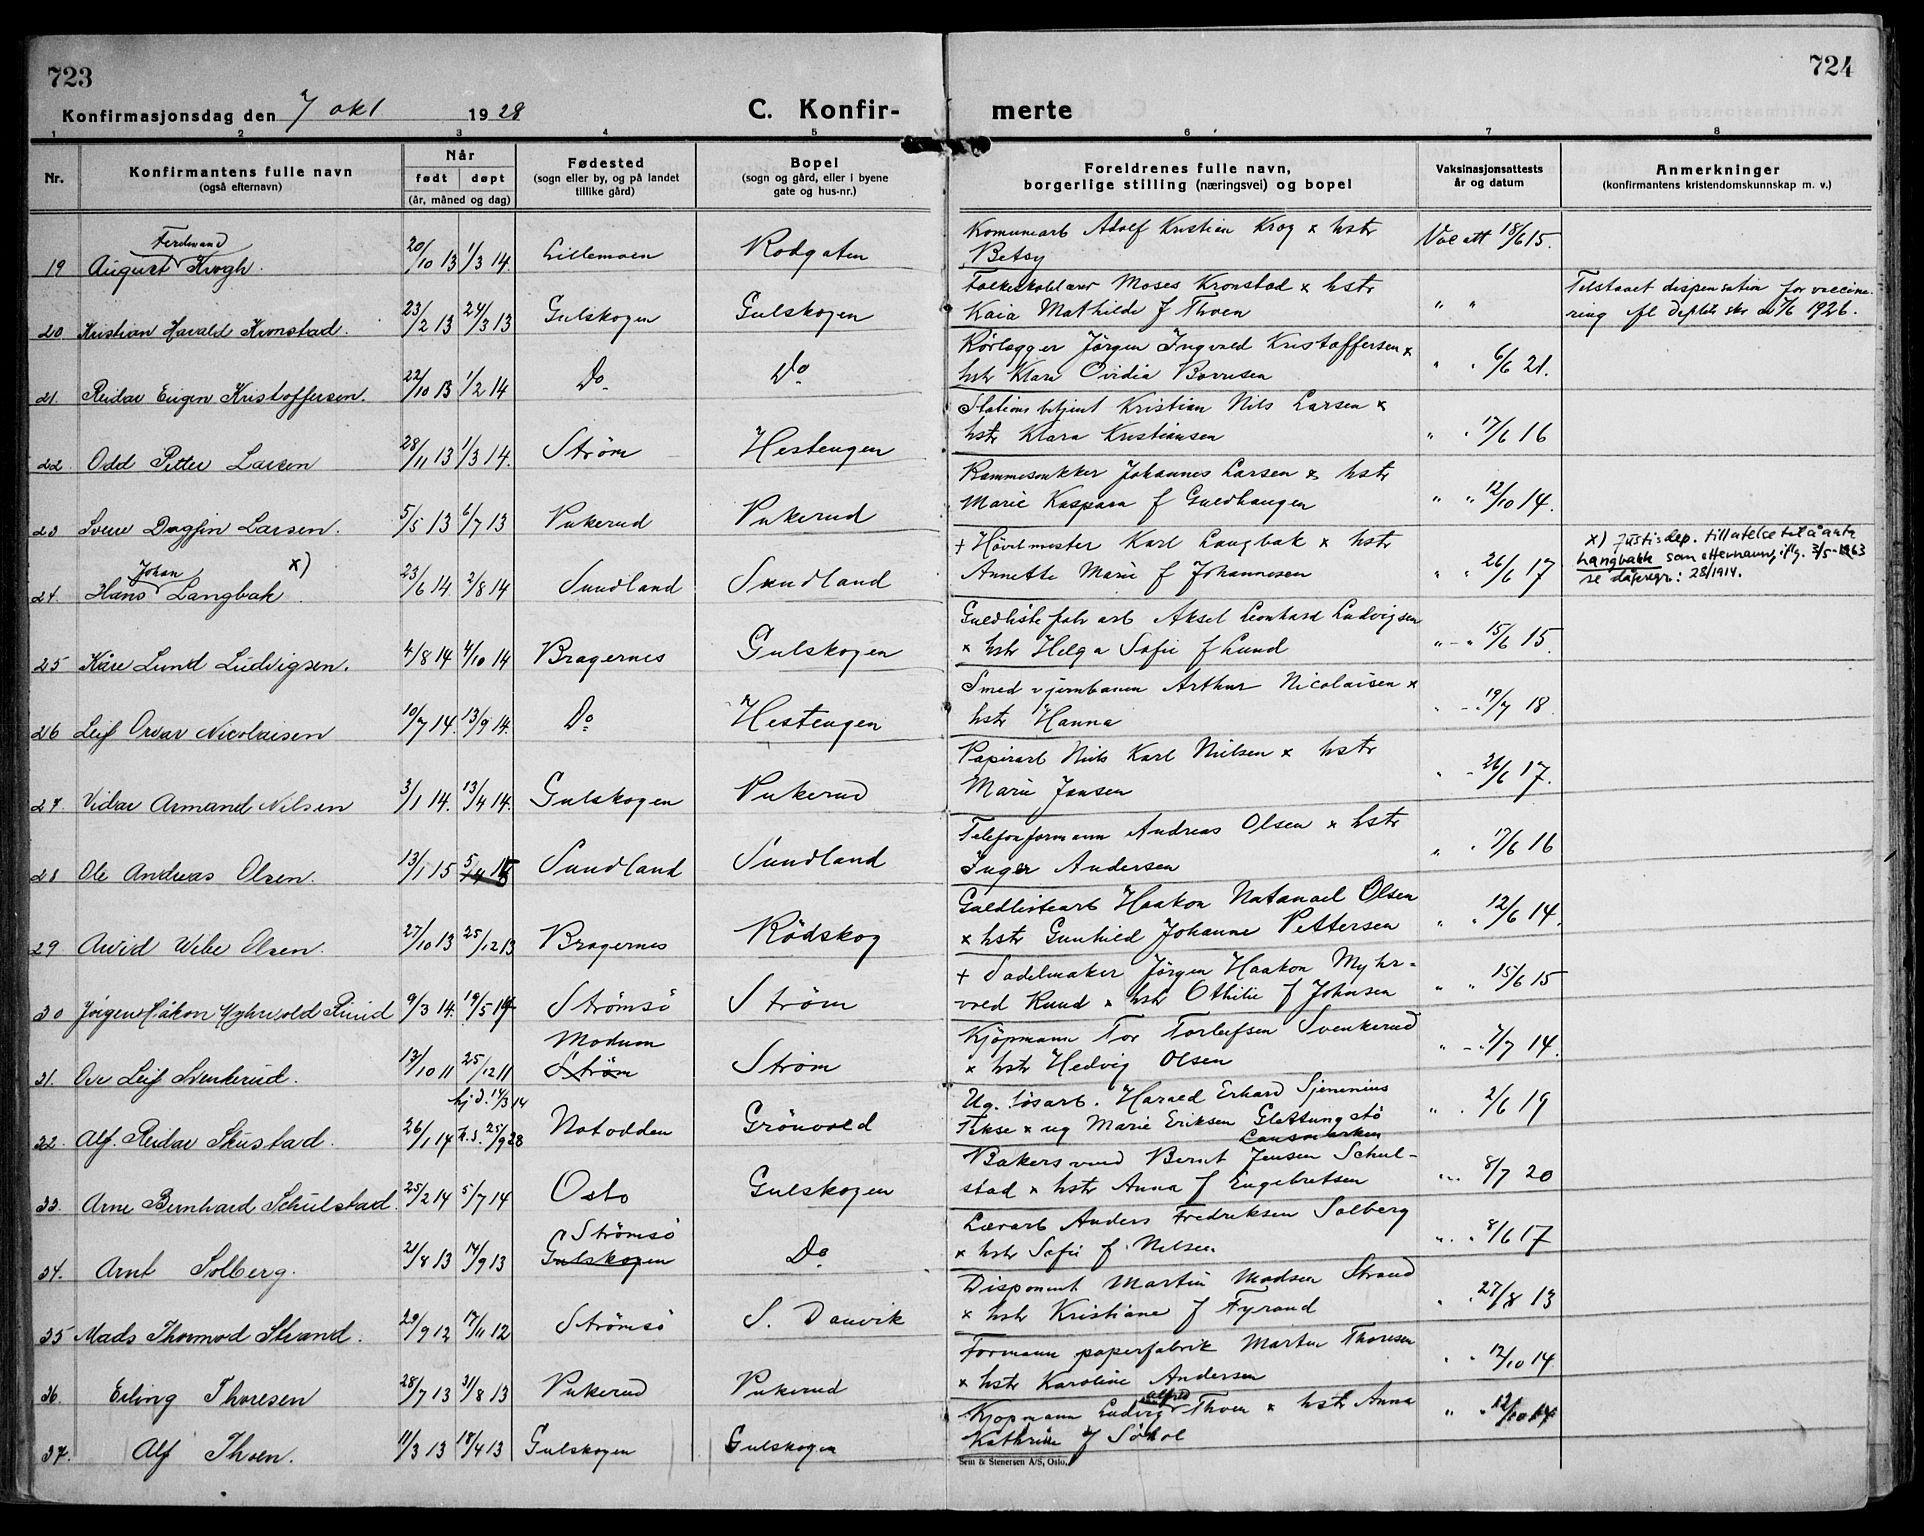 723
724
Konfirmasjonsdag den 7 okt 1928
C. Konfir-
merte
1 2 3 4 5 6 7 8
Nr.
Konfirmantens fulle navn
(også efternavn)
Når
født døpt
(år, måned og dag)
Fødested
(sogn eller by, og på landet
tillike gård)
Bopel
(sogn og gård, eller i byene
gate og hus-nr.)
Foreldrenes fulle navn,
borgerlige stilling (næringsvei) og bopel
Vaksinasjonsattests
år og datum
Anmerkninger
(konfirmantens kristendomskunnskap m. v.)
Ferdinand
19 August Krogh. 20/10 13 1/3 14. Lillemoen Rodgaten
Komunearb Adolf Kristian Krog x hstr
Betsy
Vac att 18/6 15.
20 Kristian Harald Kronstad. 23/2 13 24/3 13 Gulskogen Gulskogen
Folkeskolelærer Moses Kronstad x hstr
Kaia Mathilde f Thoen
" "
Tilstaaet dispensation for vaccine-
ring ifl Deptets skr 1926.
21. Reidar Eugen Kristoffersen. 22/10 13 1/2 14 Do Do
Rørlegger Jörgen Ingvald Kristoffersen x
hstr Klara Ovidia Borresen
" " 6/6 21.
22. Odd Petter Larsen 28/11 13 1/3 14. Strøm Hestengen
Stations betjent Kristian Nils Larsen x
hstr Klara Kristiansen
" " 17/6 16
23 Sverre Dagfin Larsen. 5/5 13 6/7 13 Pukerud Pukerud
Rammesnekker Johannes Larsen x hstr
Marie Kaspara f Guldhaugen
" " 12/10 14.
Johan x)
24. Hans Langbak 23/6 14 2/8 14 Sundland Sundland
+ Høvelmester Karl Langbak x hstr
Annette Marie f Johannesen
" " 26/6 17
x) Justisdep. tillatelse til å anta
Langbakk som etternavn, iflg. 3/5-1963
se dåpsregr: 28/1914.
25 Kåre Lund Ludvigsen. 4/8 14 4/10 14 Bragernes Gulskogen
Guldliste fabr arb Aksel Leonhard Ludvigsen
x hstr Helga Sofie f Lund
" - " 15/6 15.
26 Leif Orvar Nicolaisen 10/7 14. 13/9 14. Do Hestengen
Smed v jernbanen Arthur Nicolaisen x
hstr Hanna
" - " 19/7 18.
27. Vidar Armand Nilsen 3/1 14. 13/4 14. Gulskogen Pukerud
Papirarb Nils Karl Nielsen x hstr
Marie Jansen
" - 26/6 17.
28 Ole Andreas Olsen. 13/1 15 5/4 15 Sundland Sundland
Telefonformann Andreas Olsen x hstr
Inger Andersen
" " 17/6 16
29 Arvid Wibe Olsen. 27/10 13 25/12 13 Bragernes Rödskog
Guldlistearb Haakon Natanael Olsen
x hstr Gunhild Johanne Pettersen
" " 12/6 14.
30 Jörgen Håkon Myhrvold Ruud 9/3 14. 19/5 14 Strömsö Strøm
+ Sadelmaker Jørgen Haakon Myhr-
vold Ruud x hstr Othilie f Johnsen
" " 15/6 15
Modum
31. Ove Leif Svenkerud. 13/10 11 25/12 11 Strøm Strøm
Kjøpmann Tor Torleifsen Svenkerud
x hstr Hedvig Olsen
" - " 7/7 14.
hj.d. 14/3 14
32. Alf Reidar Skustad. 26/1 14 K.S. 25/9 28 Notodden Grönvold
Ug. løsarb. Harald Erhard Sjenenius
Tekse x ug Marie Eriksen
" . 2/6 19
33. Arne Bernhard Schulstad. 25/2 14 5/7 14 Oslo Gulskogen
Bakersvend Bernt Jensen Schul-
stad x hstr Anna f Engebretsen
" . . 8/7 20
Strömsö
34. Arnt Solberg. 21/8 13 14/9 13 Gulskogen Do
Lærarb Anders Fredriksen Solberg
x hstr Sofie f. Nilsen
" . " 8/6 17
35 Mads Thormod Strand. 29/9 12 17/11 12 Strömsö S. Danvik
Disponent Martin Madsen Strand
x hstr Kristiane f Fyrand
" . 27/8 13
36. Erling Thoresen 28/7 13 31/8 13 Pukerud Pukerud
Formann papirfabrik Martin Thoresen
x hstr Karoline Andersen
" " 12/10 14
37. Alf Thoen. 11/3 13 18/4 13 Gulskogen Gulskogen
Alfred
Kjøpmann Ludvig Thoen x hstr Anna
Kathrine f
" " 12/10 14
Sem & Stenersen A/S, Oslo.